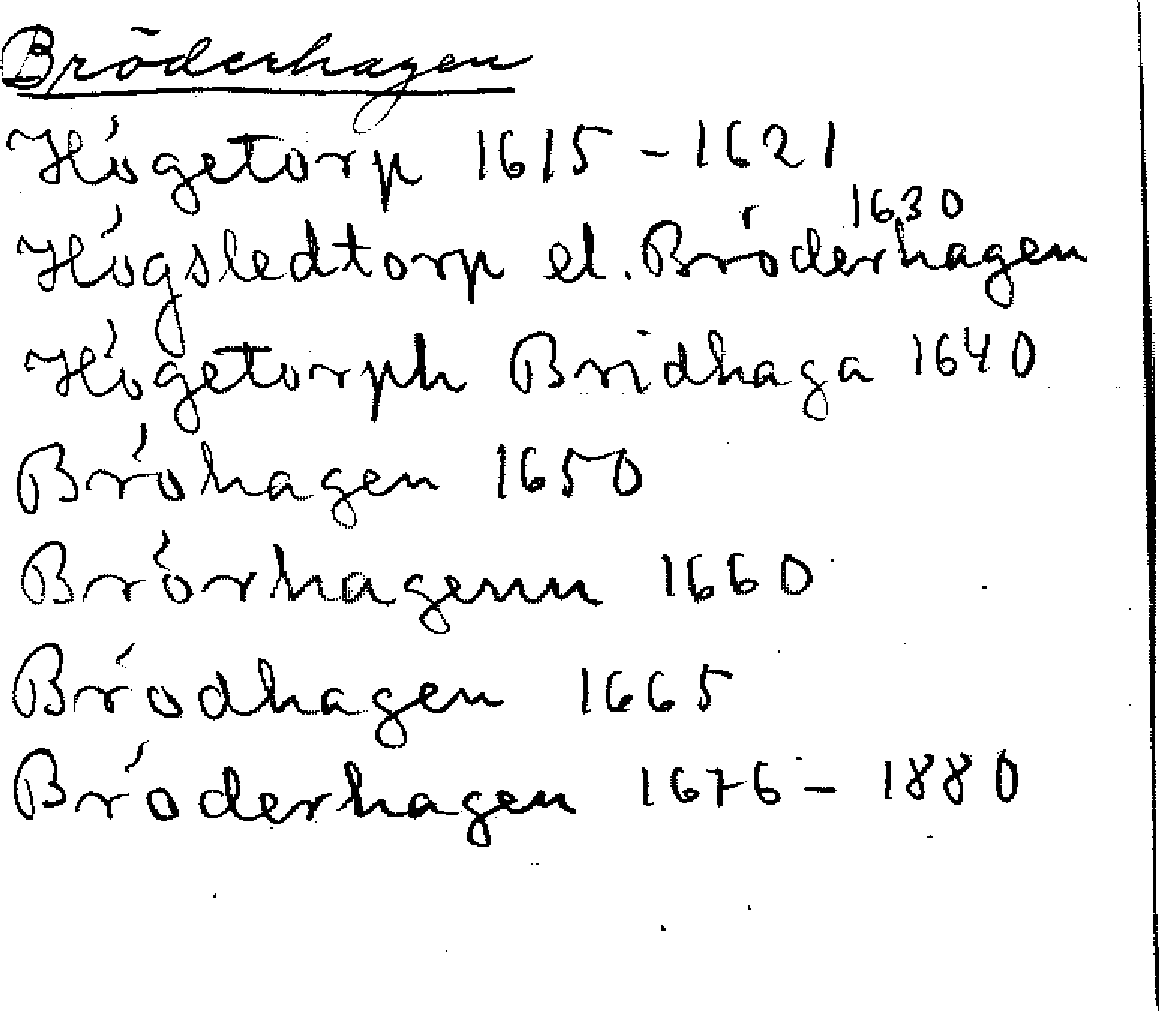 Bröderhagen
Högetorp 1615 - 1621
Högsledtorp el. Bröderhagen 1630
Högetorph Bridhaga 1640
Bröhagen 1650
Brörhagenn 1660
Brödhagen 1665
Bröderhagen 1676 - 1880